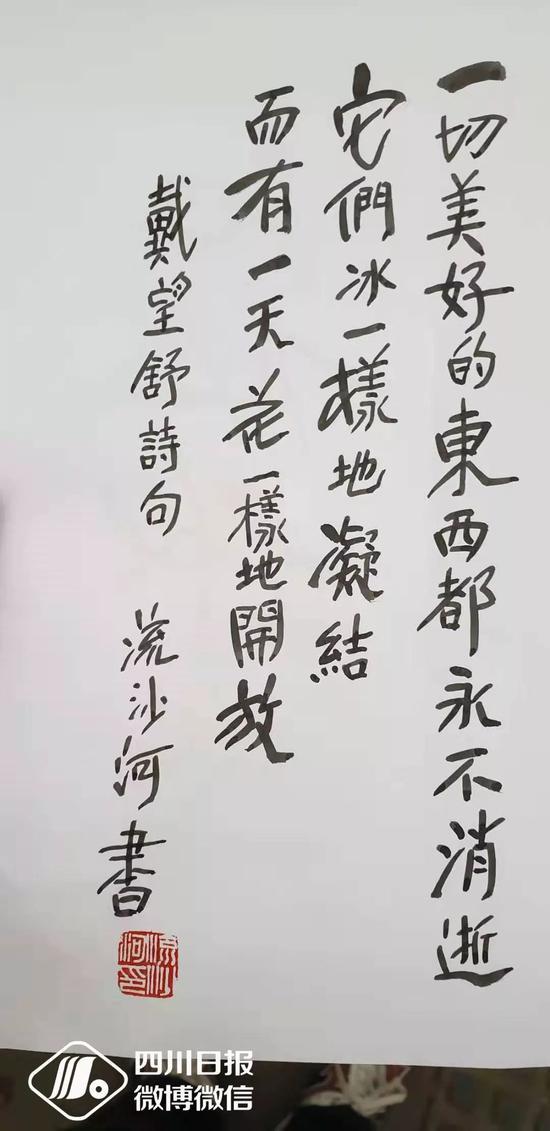 一切美好的東西都永不消逝
它們冰一樣地凝結
而有一天花一樣地開放
戴望舒詩句 流沙河書
流沙河印
四川日报
微博微信